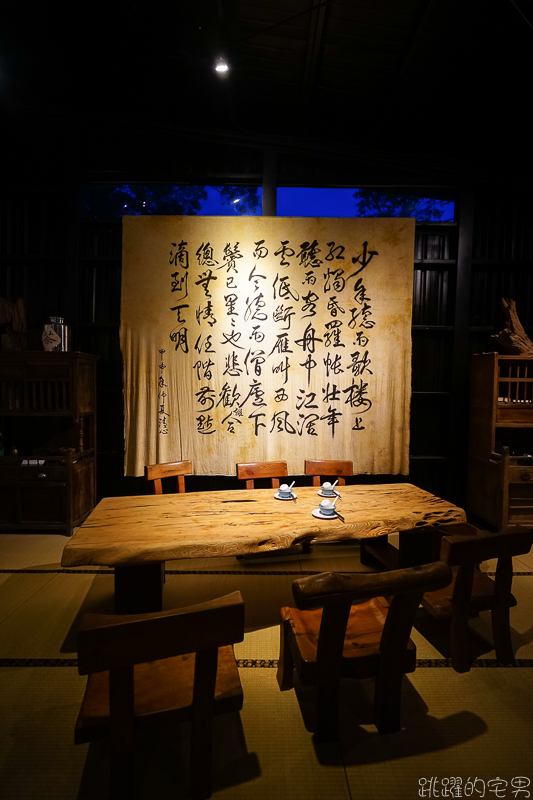 少年聽雨歌樓上
紅燭昏羅帳壯年
聽雨客舟中江闊
雲低斷雁叫西風
而今聽雨僧廬下
鬢已星々也悲歡離合
總無情任階前點
滴到天明
甲申
跳躍的宅男